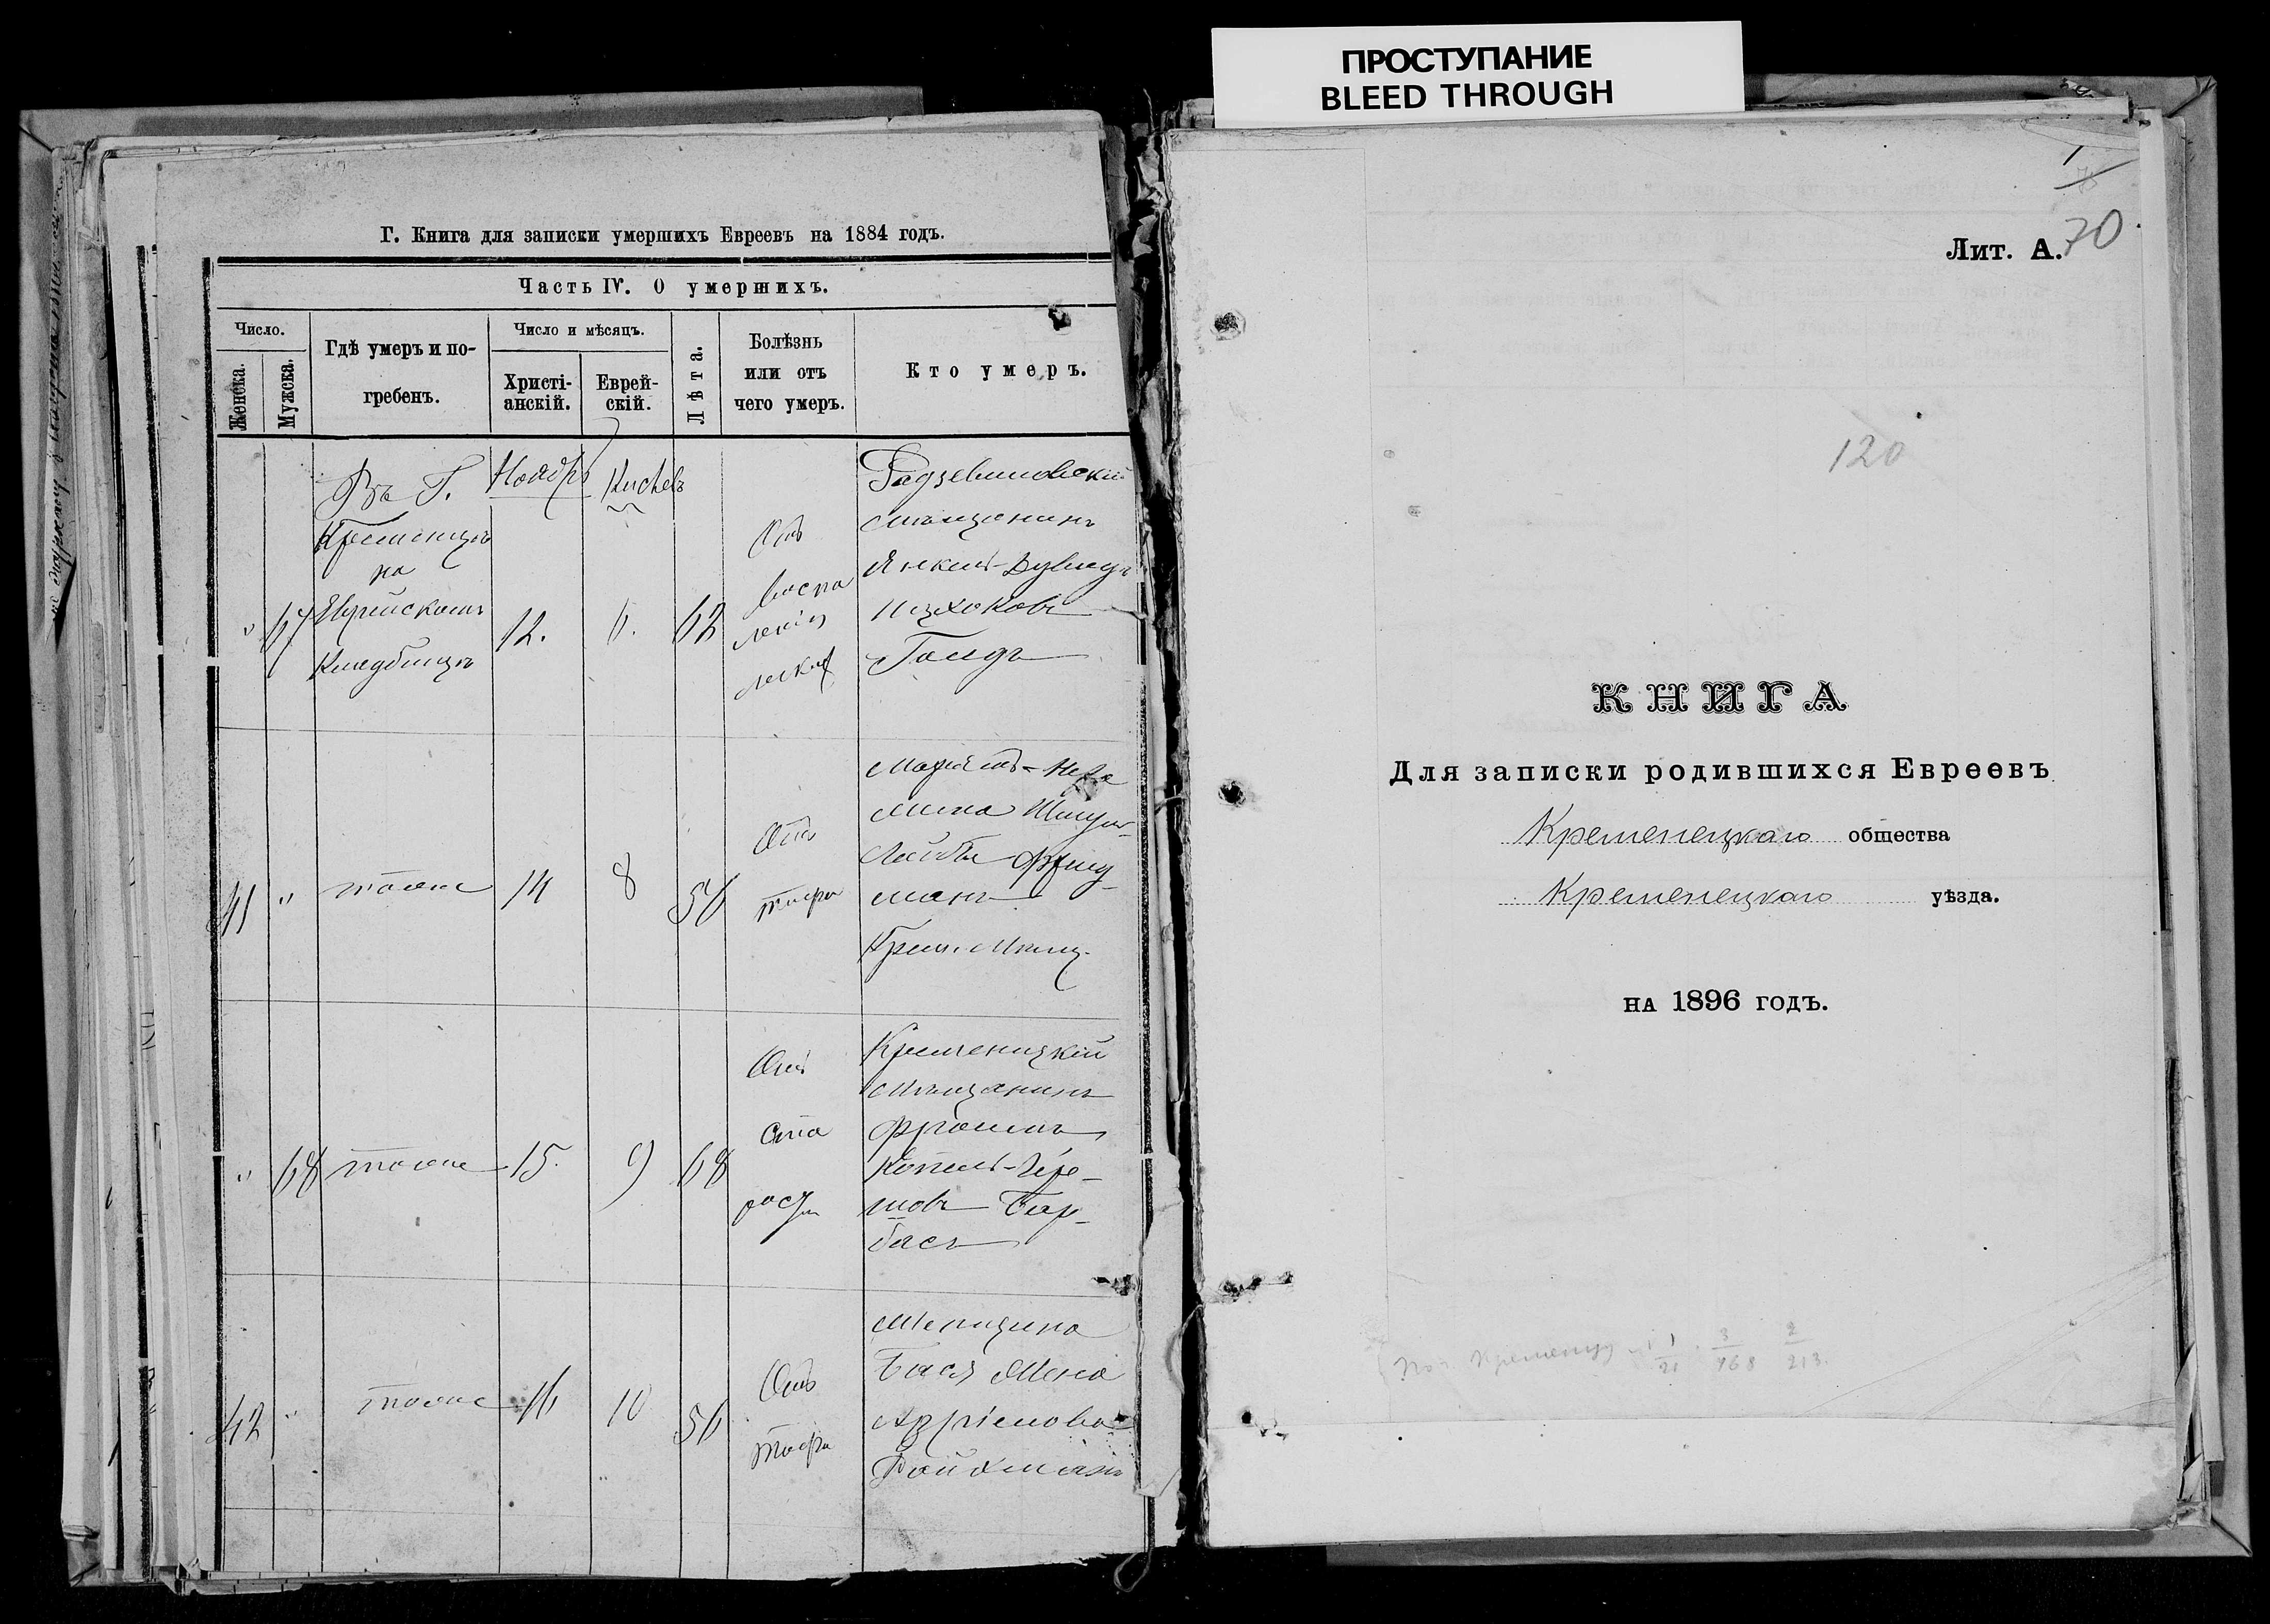 ПРОСТУПАНИЕ
BLEED THROUGH
Г. Книга для записки умершихъ Евреевъ на 1884 годъ.
Часть IV. О умершихъ.
Число.
Женска.
Мужска.
Гдѣ умеръ и по-
гребенъ.
Число и мѣсяцъ.
Христі-
анскій.
Еврей-
скій.
Лѣта.
Болѣзнь
или отъ
чего умеръ.
Кто умеръ.
"
67
Въ Г.
Кременцѣ
на
Еврейскомъ
Кладбищѣ
Ноября
12.
Кислевъ
6.
62
Отъ
воспа
ленія
легкихъ
Радзевиловский
мѣщанинъ
Янкель-Дувидъ
Ицхоковъ
Гольдъ
41
"
тоже
14
8
56
Отъ
тифа
жена Шмуль
Лейбы Фрид
манъ
Крем. Мѣщ.
"
68
тоже
15.
9
68
Отъ
ста
рости
Кременецкій
Мѣщанинъ
Фроимъ
Копель-Гер-
шовъ Бар-
басъ
42
"
тоже
16
10
56
Отъ
тифа
Мѣщанка
Бася
Ройхманъ
1
70
Лит. А.
120
КНИГА
Для записки родившихся Евреевъ
Кременецкаго общества
Кременецкаго уѣзда.
на 1896 годъ.